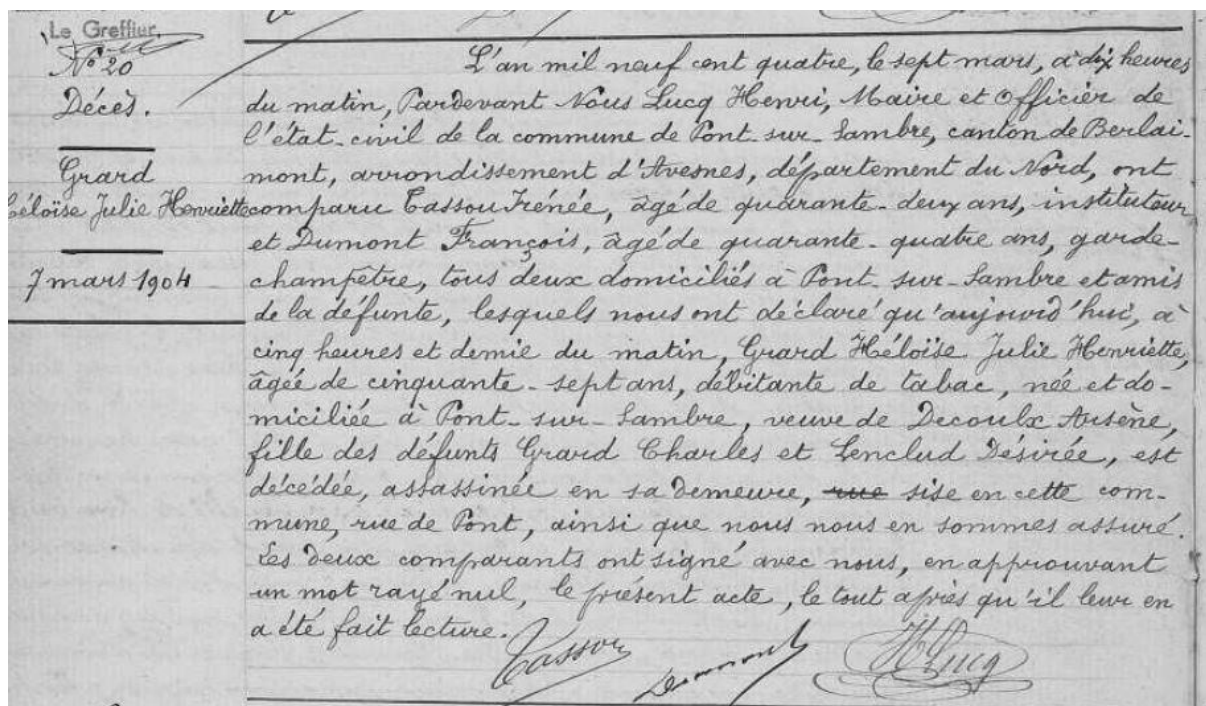 Le Greffier.
N° 20
Décès.
Grard
Héloïse Julie Henriette
7 mars 1904
L'an mil neuf cent quatre, le sept mars, à dix heures
du matin, Pardevant Nous Lucq Henri, Maire et Officier de
l'état-civil de la commune de Pont-sur-Sambre, canton de Berlai-
mont, arrondissement d'Avesnes, département du Nord, ont
comparu Tassou Irénée, âgé de quarante-deux ans, instituteur
et Dumont François, âgé de quarante-quatre ans, garde-
champêtre, tous deux domiciliés à Pont-sur-Sambre et amis
de la défunte, lesquels nous ont déclaré qu'aujourd'hui, à
cinq heures et demie du matin, Grard Héloïse Julie Henriette,
âgée de cinquante-sept ans, débitante de tabac, née et do-
miciliée à Pont-sur-Sambre, veuve de Decoulx Arsène,
fille des défunts Grard Charles et Lenclud Désirée, est
décédée, assassinée en sa demeure, rue sise en cette com-
mune, rue de Pont, ainsi que nous nous en sommes assuré.
Les deux comparants ont signé avec nous, en approuvant
un mot rayé nul, le présent acte, le tout après qu'il leur en
a été fait lecture.
Tassou Dumont HLucq